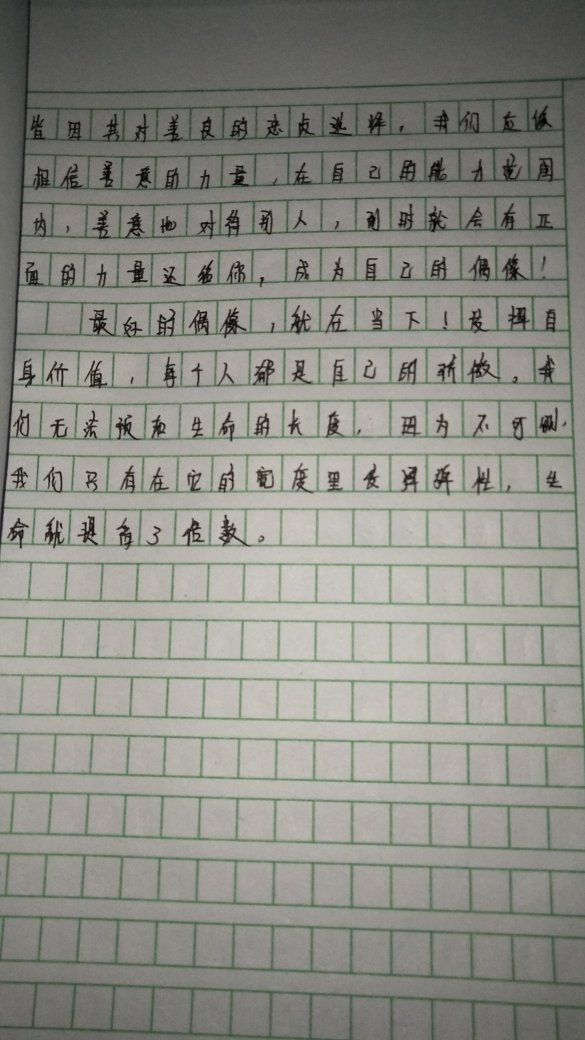 皆因其对善良的态度选择。我们应该
相信善意的力量，在自己的能力范围
内，善意地对待别人，到时就会有正
面的力量还给你，成为自己的偶像！
最好的偶像，就在当下！发挥自
身价值，每个人都是自己的骄傲。我
们无法预知生命的长度，因为不可测，
我们只有在它的宽度里发挥弹性，生
命就提高了倍数。